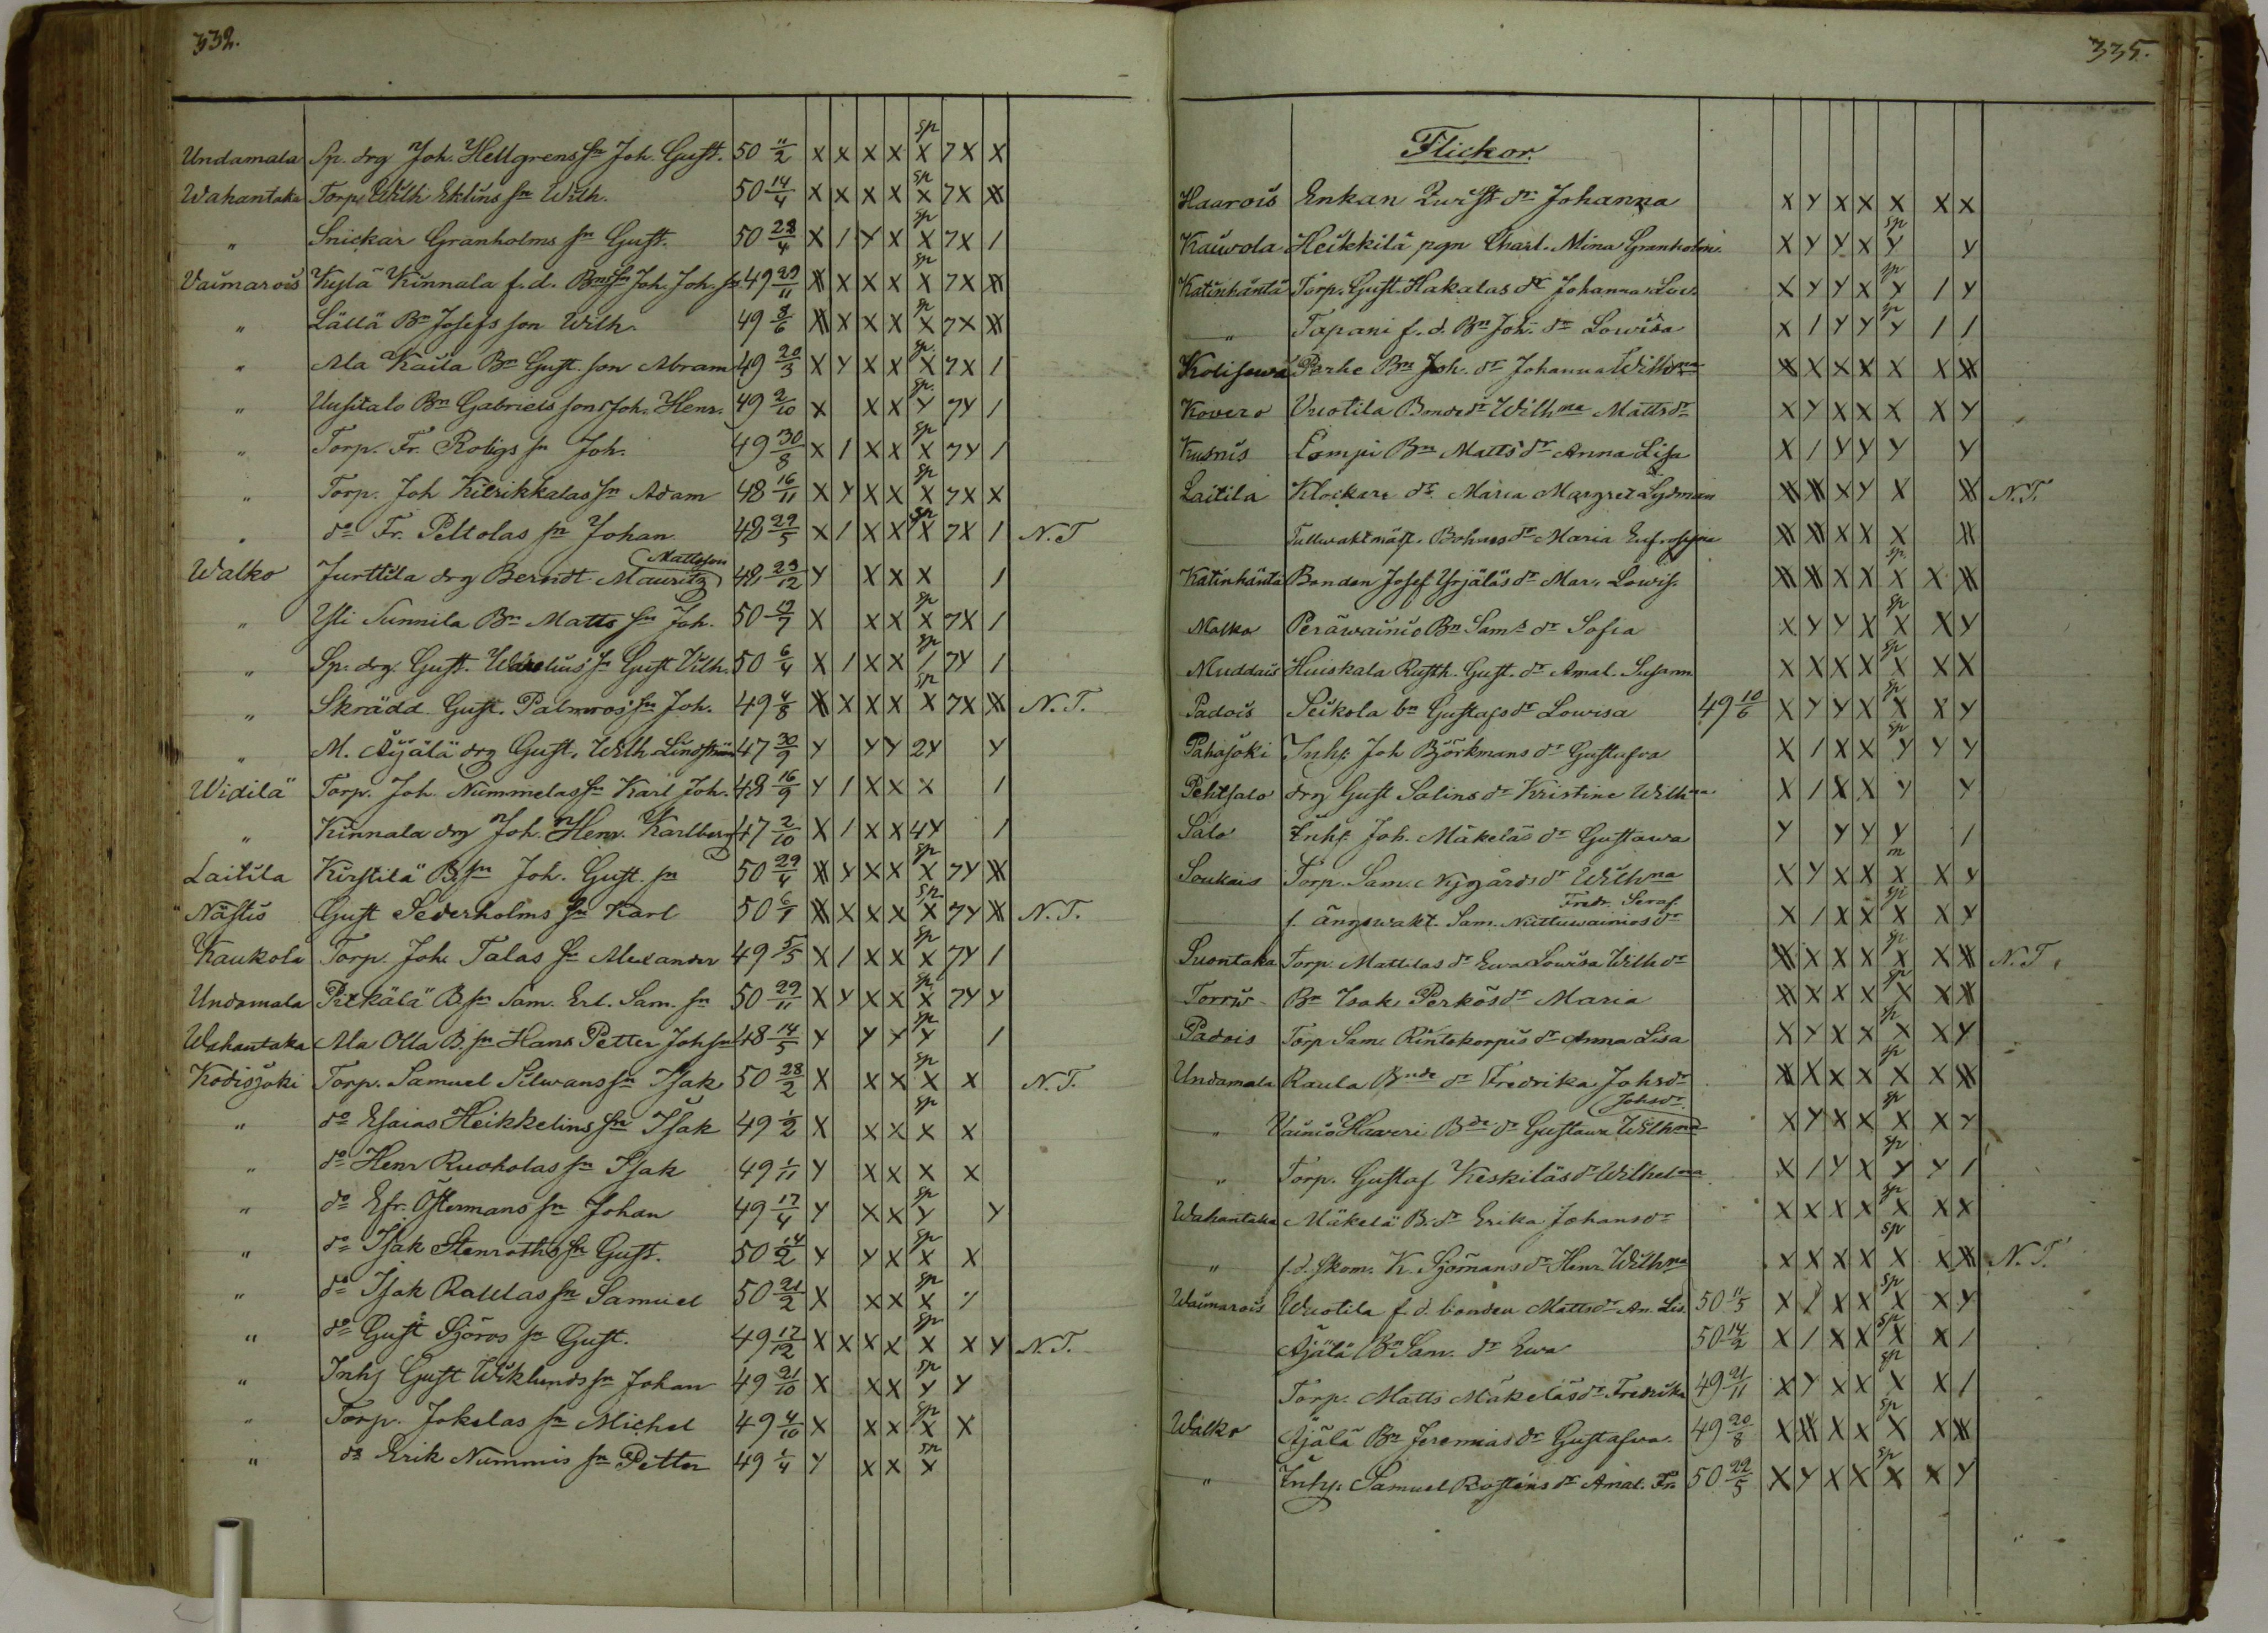 332.
Undamala Sp. drg Joh. Hellgrens sn Joh. Gust. 50 11/2 X X X X sp X 7X X
Wahantaka Torp. Wilh Eklins sn Wilh. 50 14/4 X X X X sp X 7X XX
" Snickar Granholms sn Gust. 50 28/4 X / Y X sp X 7X /
Vaimarois Kylä Kinnala f.d. Bn sn Joh. Joh. sn 49 29/11 XX X X X sp X 7X XX
" Lällä Bn Josefs son Wilh. 49 8/6 XX X X X sp X 7X XX
" Ala Kaila Bn Gust. son Abram 49 20/3 X Y X X sp X 7X /
" Uusitalo Bn Gabriels son Joh. Henr. 49 2/10 X X X sp Y 7Y /
" Torp. Fr. Roligs sn Joh. 49 30/8 X / X X sp X 7Y /
" Torp. Joh Kilrikkalas sn Adam 48 16/11 X Y X X sp X 7X X
" do Fr. Peltolas sn Johan 48 29/5 X / X X sp X 7X / N.T
Walko Jurttila drg Berndt Mauritz Mattsson 48 23/12 Y X X X /
" Yli Sunnila Bn Matts sn Joh. 50 19/7 X X X sp X 7X /
" Sp. drg. Gust. sn Gust Vilh. 50 6/4 X / X X sp / 7Y /
" Skrädd. Gust. Palmros sn Joh. 49 4/8 XX X X X sp X 7X XX N.T.
" M. Äijälä drg Gust. Wilh. Lindström 47 30/9 Y Y Y 2Y Y
Widilä Torp. Joh. Nummelas sn Karl Joh. 48 16/9 Y / X X X /
" Kinnala drg Joh. Henr. Karlberg 47 2/10 X / X X 4Y /
Laitila Kirstilä B. sn Joh. Gust. sn 50 29/4 XX Y X X sp X 7Y XX
" Nästis Gust Sederholms sn Karl 50 6/1 XX X X X sp X 7Y XX N.T.
Kaukola Torp. Joh. Talas sn Alexander 49 5/5 X / X X sp X 7Y /
Undamala Pitkälä B. sn Sam. Erl. Sam. sn 50 29/11 X Y X X sp X 7Y Y
Wahantaka Ala Olla B. sn Hans Petter Joh sn 48 14/5 Y Y Y sp Y /
Kodisjoki Torp. Samuel Silwans sn Isak 50 28/2 X X X sp X X N.T.
" do Esaias Heikkelins sn Isak 49 1/2 X X X sp X X
" do Henr Ruoholas sn Isak 49 1/11 Y X X X X
" do Efr. Östermans sn Johan 49 17/4 Y X X sp Y Y
" do Isak Stenroths sn Gust. 50 14/2 Y Y X sp X X
" do Isak Rallas sn Samuel 50 21/2 X X X sp X
" do Gust Sjöros sn Gust. 49 17/12 X X X X sp X X Y N.T.
" Inhs Gust Wiklunds sn Johan 49 21/10 X X X sp Y Y
" Torp. Jokelas sn Michel 49 4/10 X X X sp X X
" do Erik Nummis sn Petter 49 1/4 Y X X sp X
335.
Flickor.
Haarois Enkan Qvist dr Johanna X Y X X X X X
Kauwola Heikkilä pgn Charl. Mina Granholm X Y Y X sp Y Y
Katinhäntä Torp. Gust. Hakalas dr Johanna Lov. X Y Y X sp Y / Y
" Tapani f.d. Bn Joh. dr Lowisa X / Y Y sp Y / /
Kolisewa Parhe Bn Joh. dr Johanna Wilhna XX X X X X X XX
Kovero Vuotila Bonde dr Wilhna Matts dr X Y X X X X Y
Kusnis Lempi Bn Matts dr Anna Lisa X / Y Y Y Y
Laitila Klockare dr. Maria Margret Lydman XX XX X Y X XX N.T.
Tullwaktmäst. Bohms dr Maria Eufrosyna XX XX X X X XX
Katinhänta Bonden Josef Yrjäläs dr Mar. Lowis. XX XX X X sp X X XX
Malko Peräwainio Bn Sams dr Sofia X Y Y X sp X X Y
Muddais Huiskala Rusth. Gust. dr Amal. Susann X X X X sp X X X
Padois Seikola bn Gustafs dr Lowisa 49 10/6 X Y Y X sp X X Y
Pahojoki Inhs. Joh Björkmans dr Gustafva X / X X sp Y Y Y
Pehtsalo drg Gust Salins dr Kristine Wilhna X / X X Y Y
Salo Inhs. Joh. Mäkeläs dr Gustawa Y Y Y Y /
Soukais Torp. Sam. Nygårds dr Wilhna X Y X X m X X Y
f. ängswakt. Sam. Nuttuwainios dr Fredr. Seraf. X / X X sp X X Y
Suontaka Torp. Mattilas dr Ewa Lowisa Wilh dr XX X X X sp X X XX N.T.
Torrio Bn Isak Perkös dr Maria XX X X X sp X X XX
Padois Torp Sam. Rintakorpis dr Anna Lisa X Y X X sp X X Y
Undamala Raula Bnde dr Fredrika Johs dr XX X X X sp X X XX
" Vainio Haveri Bde dr Gustawa Wilhna Johsdr. X Y X X sp X X Y
" Torp. Gustaf Keskiläs dr Wilhelna X / Y X sp Y Y /
Wahantaka Mäkelä B. dr Erika Johans dr X X X X sp X X X
" f.d. skom. K. Sjömans dr Henr. Wilhna X X X X sp X X XX N.T.
Waimarois Wuotila f.d. bonden Matts dr An. Lis. 50 11/5 X Y X X sp X X Y
Äjälä Bn Sam. dr Ewa 50 14/2 X / X X sp X X /
Torp. Matts Mäkeläs dr Fredrika 49 21/11 X Y X X sp X X /
Walko Äjälä Bn Jeremias dr Gustafva 49 20/8 X XX X X sp X X XX
" Inhs. Samuel Rosténs dr Amal. Fr. 50 22/5 X Y X X sp X X Y